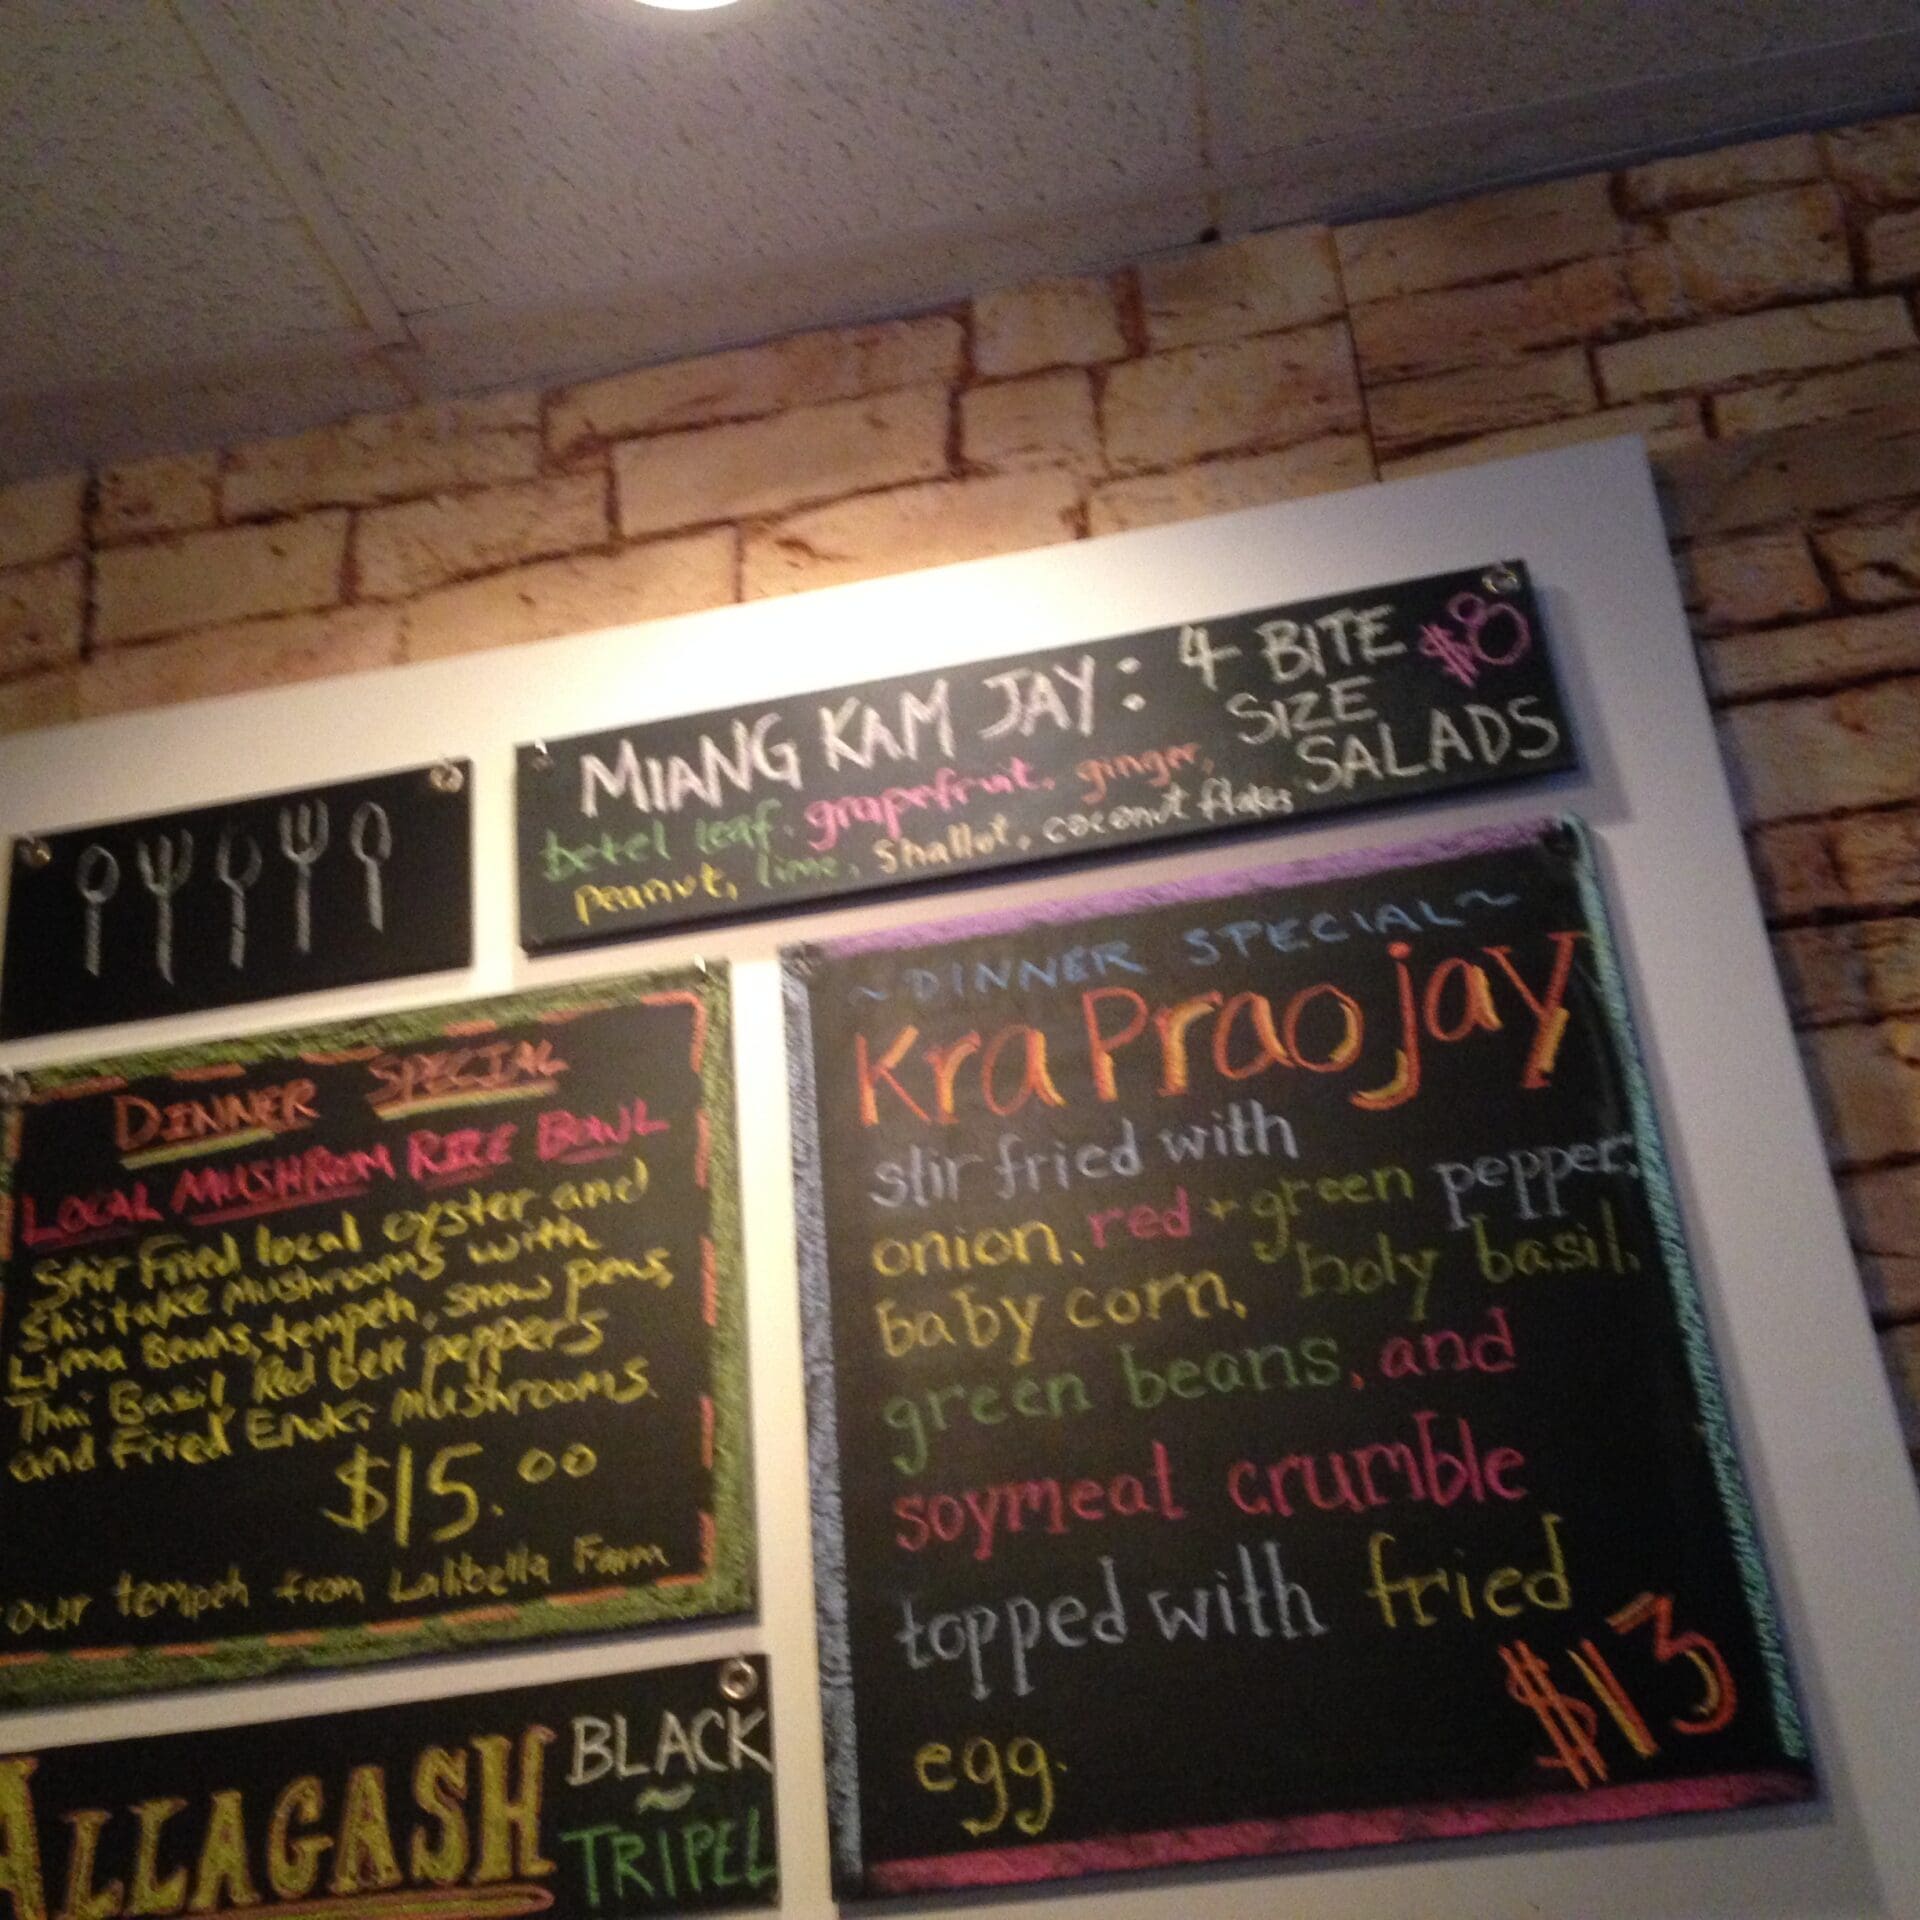 MIANG KAM JAY: 4 BITE SIZE SALADS $8
betel leaf. grapefruit. ginger,
peanut, lime, shallot, coconut flakes
DINNER SPECIAL
LOCAL MUSHROOM RICE BOWL
Stir Fried local oyster and
Shiitake Mushrooms with
Lima Beans, tempeh, snow peas,
Thai Basil, Red bell peppers
and Fried Enoki Mushrooms.
$15.00
our tempeh from Lalibella Farm
ALLAGASH
BLACK
~
TRIPEL
~DINNER SPECIAL~
Kra Prao jay
stir fried with
onion, red + green pepper,
baby corn, holy basil,
green beans, and
soymeat crumble
topped with fried
egg.
$13